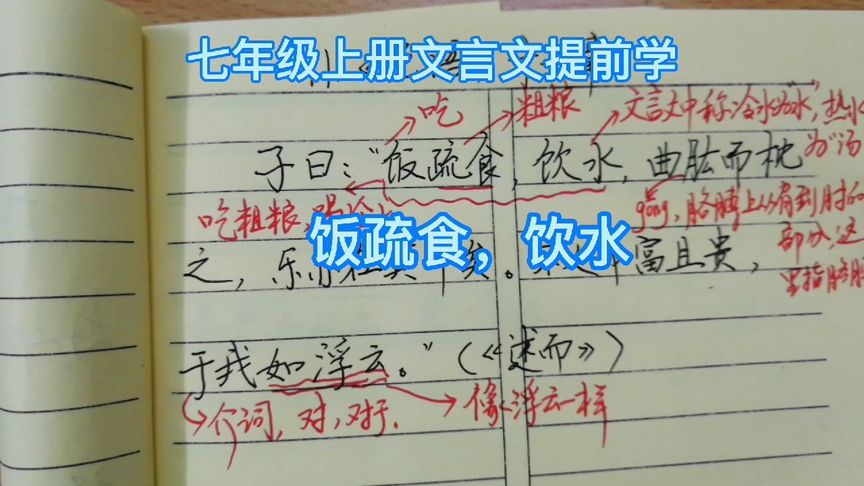 七年级上册文言文提前学
吃
粗粮
文言文中称冷水为"水",热水
为"汤
子曰:"饭疏食,饮水,曲肱而枕
吃粗粮
gōng,胳膊上从肩到肘的
部分,这
里指胳膊
饭疏食,饮水
之,乐
富且贵,
于我如浮云。"(《述而》)
介词,对,对于.
像浮云一样